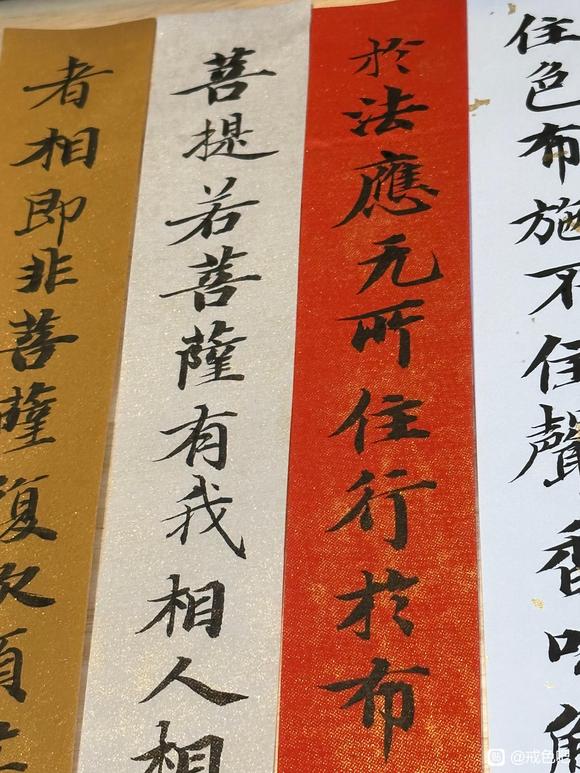 住色布施不住聲香味
於法應无所住行於布
菩提若菩薩有我相人相
者相即非菩薩復次須
@戒色吧